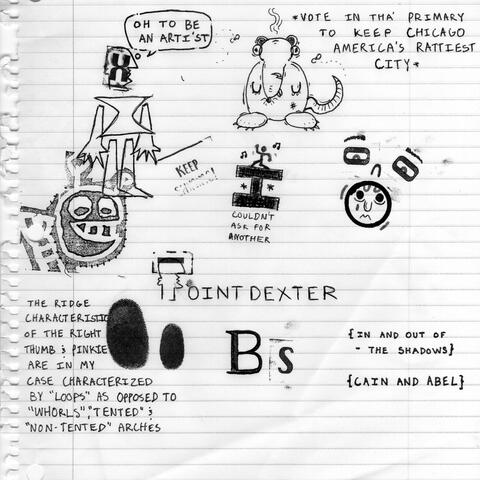 OH TO BE
AN ARTI'ST
*VOTE IN THA' PRIMARY
TO KEEP CHICAGO
AMERICA'S RATTIEST
CITY*
KEEP
COULDN'T
ASK FOR
ANOTHER
POINTDEXTER
THE RIDGE
CHARACTERISTIC
OF THE RIGHT
THUMB & PINKIE
ARE IN MY
CASE CHARACTERIZED
BY "LOOPS" AS OPPOSED TO
"WHORLS", "TENTED" &
"NON-TENTED" ARCHES
B
s
{IN AND OUT OF
- THE SHADOWS}
{CAIN AND ABEL}